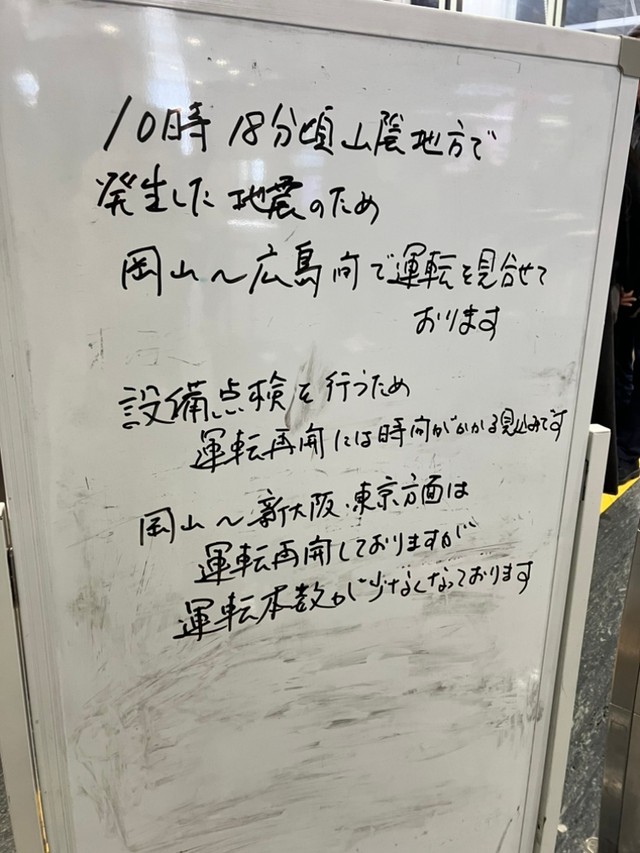 10時18分頃山陰地方で
発生した地震のため
岡山～広島間で運転を見合せて
おります
設備点検を行うため
運転再開には時間がかかる見込みです
岡山～新大阪・東京方面は
運転再開しておりますが
運転本数が少なくなっております